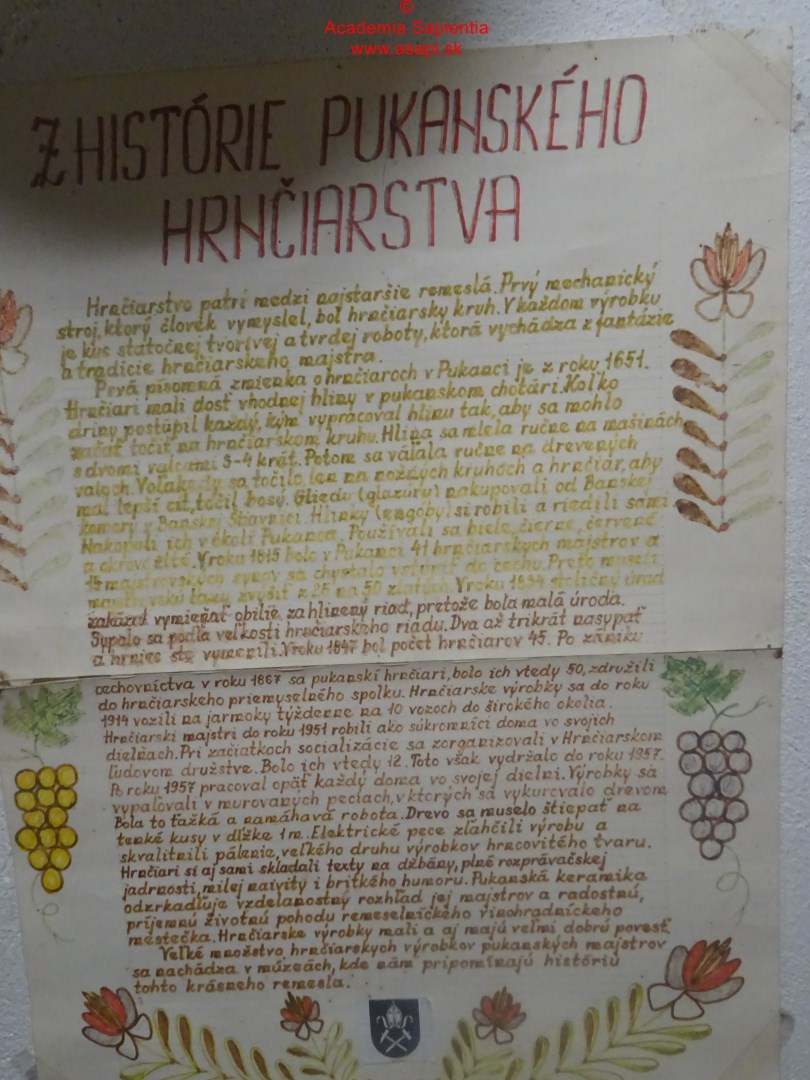 ©
Academia Sapientia
www.asapi.sk
Z HISTÓRIE PUKANSKÉHO
HRNČIARSTVA
Hrnčiarstvo patrí medzi najstaršie remeslá. Prvý mechanický
stroj, ktorý človek vymyslel, bol hrnčiarsky kruh. V každom výrobku
je kus statočnej tvorivej a tvrdej roboty, ktorá vychádza z fantázie
a tradície hrnčiarskeho majstra.
Prvá písomná zmienka o hrnčiaroch v Pukanci je z roku 1651.
Hrnčiari mali dosť vhodnej hliny v pukanskom chotári. Koľko
driny postúpil každý, kým vypracoval hlinu tak, aby sa mohlo
začať točiť na hrnčiarskom kruhu. Hlina sa mlela ručne na mašinách
s dvomi valcami 3-4 krát. Potom sa váľala ručne na drevených
valoch. Voľakedy sa točilo len na nožných kruhoch a hrnčiar, aby
mal lepší cit, točil bosý. Gliedu (glazúru) nakupovali od Banskej
komory v Banskej Štiavnici. Hlinky (engoby) si robili a riedili sami
Nakopali ich v okolí Pukanca. Používali sa biele, čierne, červené
a okrovožlté. V roku 1815 bolo v Pukanci 41 hrnčiarskych majstrov a
15 majstrovských synov sa chystalo vstúpiť do cechu. Preto museli
taxy zvýšiť z 25 na 50 zlatých. V roku 1834 stoličný úrad
zakázal vymieňať obilie za hlinený riad, pretože bola malá úroda.
Sypalo sa podľa veľkosti hrnčiarskeho riadu. Dva až trikrát nasypať
a hrniec ste vymenili. V roku 1847 bol počet hrnčiarov 45. Po zániku
cechovníctva v roku 1867 sa pukanskí hrnčiari, bolo ich vtedy 50, združili
do hrnčiarskeho priemyselného spolku. Hrnčiarske výrobky sa do roku
1914 vozili na jarmoky týždenne na 10 vozoch do širokého okolia.
Hrnčiarski majstri do roku 1951 robili ako súkromníci doma vo svojich
dielňach. Pri začiatkoch socializácie sa zorganizovali v Hrnčiarskom
ľudovom družstve. Bolo ich vtedy 12. Toto však vydržalo do roku 1957.
Po roku 1957 pracoval opäť každý doma vo svojej dielni. Výrobky sa
vypaľovali v murovaných peciach, v ktorých sa vykurovalo drevom
Bola to ťažká a namáhavá robota. Drevo sa muselo štiepať na
tenké kusy v dĺžke 1 m. Elektrické pece zľahčili výrobu a
skvalitnili pálenie, veľkého druhu výrobkov hrncovitého tvaru.
Hrnčiari si aj sami skladali texty na džbány, plné rozprávačskej
jadrnosti, milej naivity i britkého humoru. Pukanská keramika
odzrkadľuje vzdelanostný rozhľad jej majstrov a radostnú,
príjemnú životnú pohodu remeselníckeho vinohradníckeho
mestečka. Hrnčiarske výrobky mali a aj majú veľmi dobrú povesť.
Veľké množstvo hrnčiarskych výrobkov pukanských majstrov
sa nachádza v múzeách, kde nám pripomínajú históriu
tohto krásneho remesla.